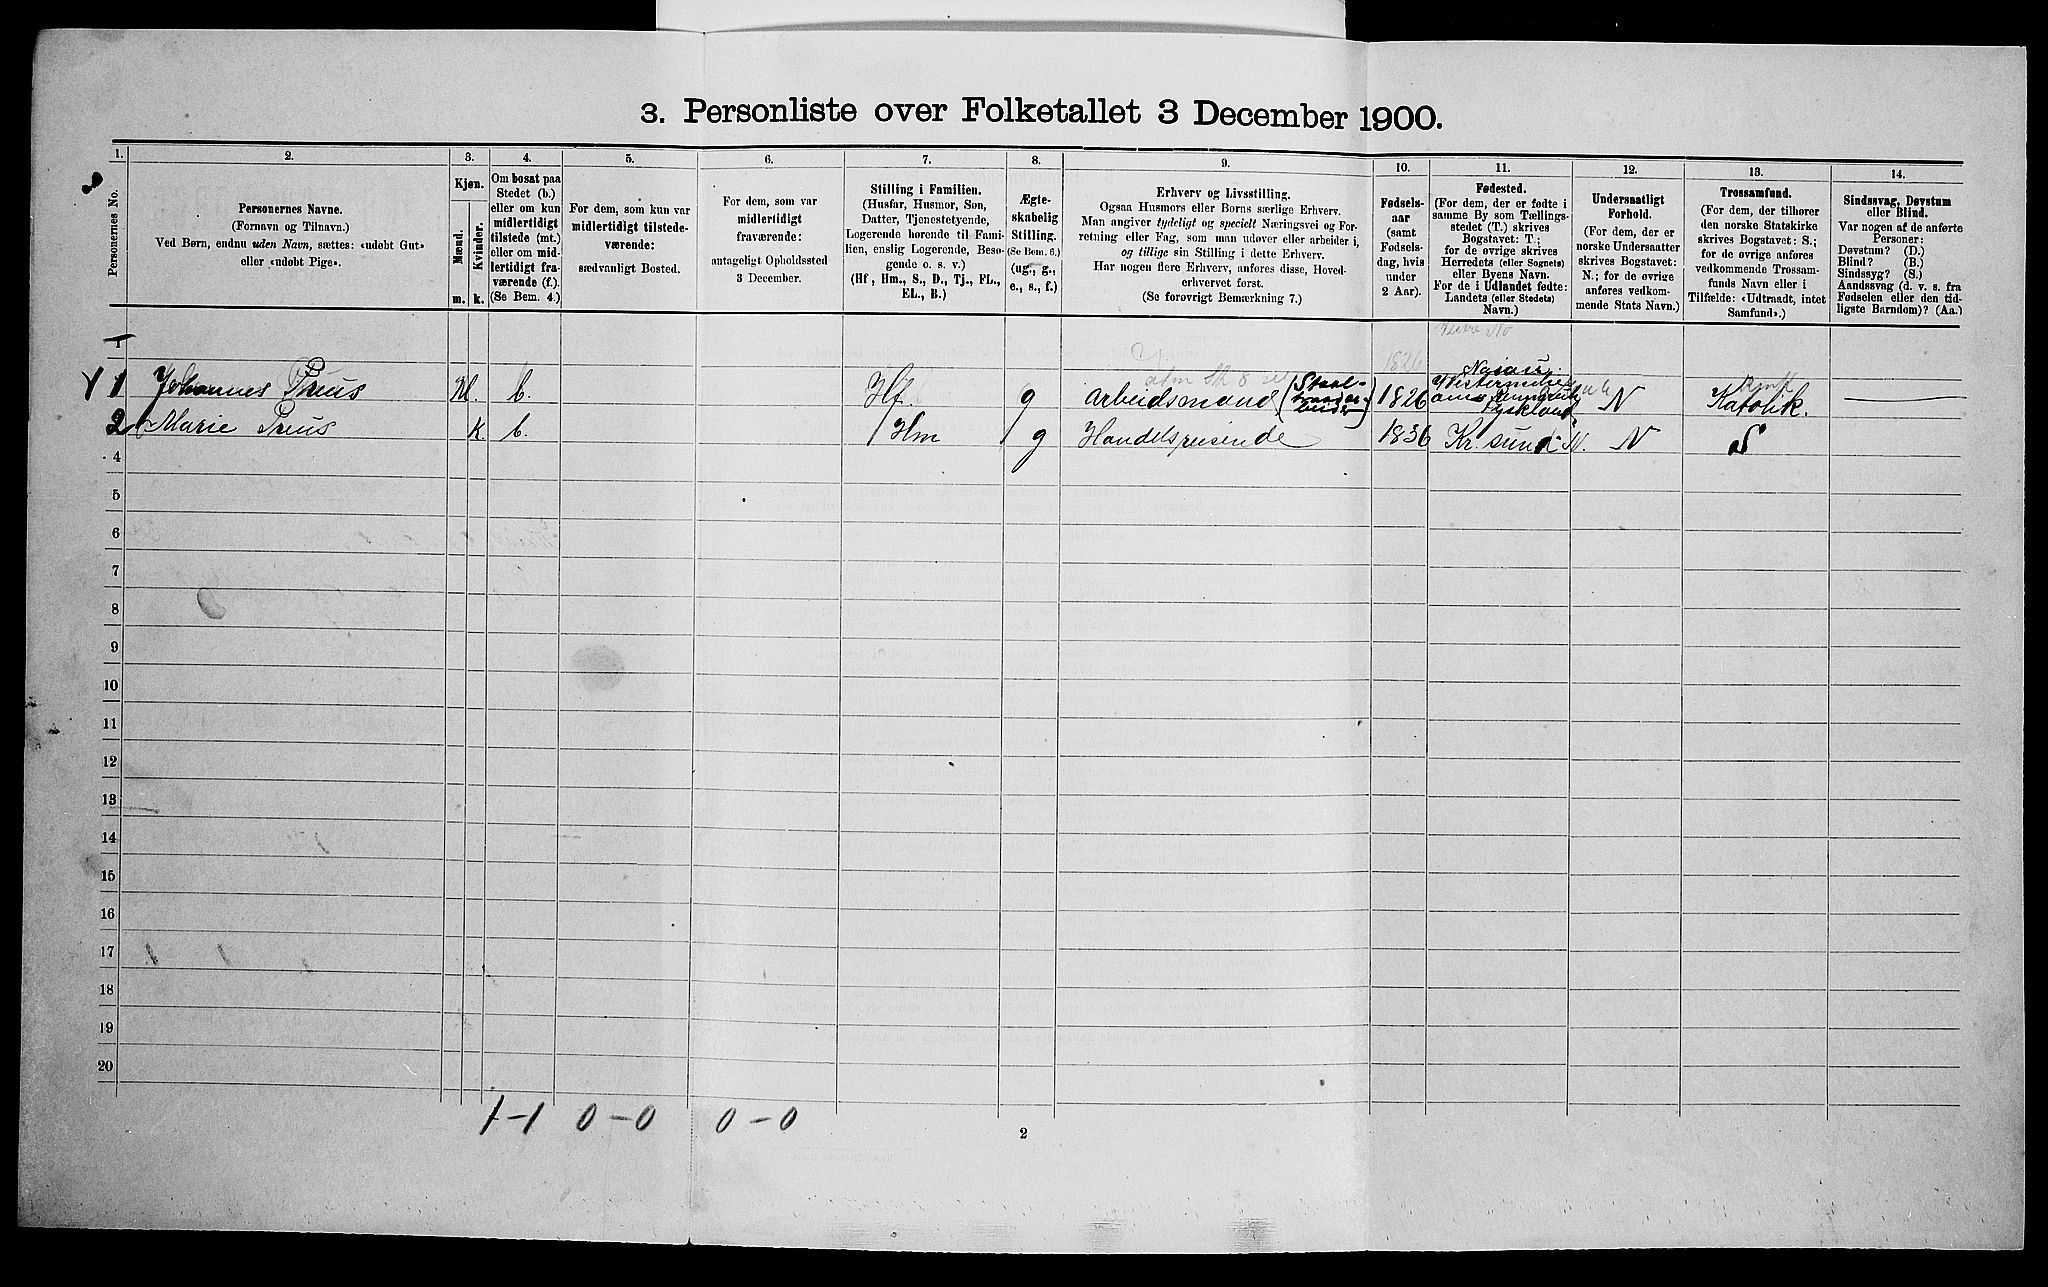 3. Personliste over Folketallet 3 December 1900.
1.
2.
3.
4.
5.
6.
7.
8.
9.
10.
11.
12.
13.
14.
Personernes No.
Personernes Navne.
(Fornavn og Tilnavn.)
Ved Børn, endnu uden Navn, sættes: «udøbt Gut»
eller «udøbt Pige».
Kjøn.
Mænd.
Kvinder.
m.
k.
Om bosat paa
Stedet (b.)
eller om kun
midlertidigt
tilstede (mt.)
eller om mid-
lertidigt fra-
værende (f.).
(Se Bem. 4.)
For dem, som kun var
midlertidigt tilstede-
værende:
sædvanligt Bosted.
For dem, som var
midlertidigt
fraværende:
antageligt Opholdssted
3 December.
Stilling i Familien.
(Husfar, Husmor, Søn,
Datter, Tjenestetyende,
Logerende hørende til Fami-
lien, enslig Logerende, Besø-
gende o. s. v.)
(Hf., Hm., S., D., Tj., FL.,
EL., B.)
Ægte-
skabelig
Stilling.
(Se Bem. 6.)
(ug., g.,
e., s., f.)
Erhverv og Livsstilling.
Ogsaa Husmors eller Børns særlige Erhverv.
Man angiver tydeligt og specielt Næringsvei og For-
retning eller Fag, som man udøver eller arbeider i,
og tillige sin Stilling i dette Erhverv.
Har nogen flere Erhverv, anføres disse, Hoved-
erhvervet først.
(Se forøvrigt Bemærkning 7.)
Fødsels-
aar
(samt
Fødsels-
dag, hvis
under
2 Aar).
Fødested.
(For dem, der er fødte i
samme By som Tællings-
stedet (T.) skrives
Bogstavet: T.;
for de øvrige skrives
Herredets (eller Sognets)
eller Byens Navn.
For de i Udlandet fødte:
Landets (eller Stedets)
Navn.)
Undersaatligt
Forhold.
(For dem, der er
norske Undersaatter
skrives Bogstavet:
N.; for de øvrige
anføres vedkom-
mende Stats Navn.)
Trossamfund.
(For dem, der tilhører
den norske Statskirke
skrives Bogstavet: S.;
for de øvrige anføres
vedkommende Trossam-
funds Navn eller i
Tilfælde: «Udtraadt, intet
Samfund».)
Sindssvag, Døvstum
eller Blind.
Var nogen af de anførte
Personer:
Døvstum? (D.)
Blind? (B.)
Sindssyg? (S.)
Aandssvag (d. v. s. fra
Fødselen eller den tid-
ligste Barndom)? (Aa.)
1
1826
1 Johannes Preus M. b. Hf g Arbeidsmand (Staal-traadar-beider) 1826 Nasau Tyskland N Katolik.
2 Marie Preus K. b. Hm g Handelsreisende 1836 Kr. sund N. N S
4
5
6
7
8
9
10
11
12
13
14
15
16
17
18
19
20
1-1 0-0 0-0
2